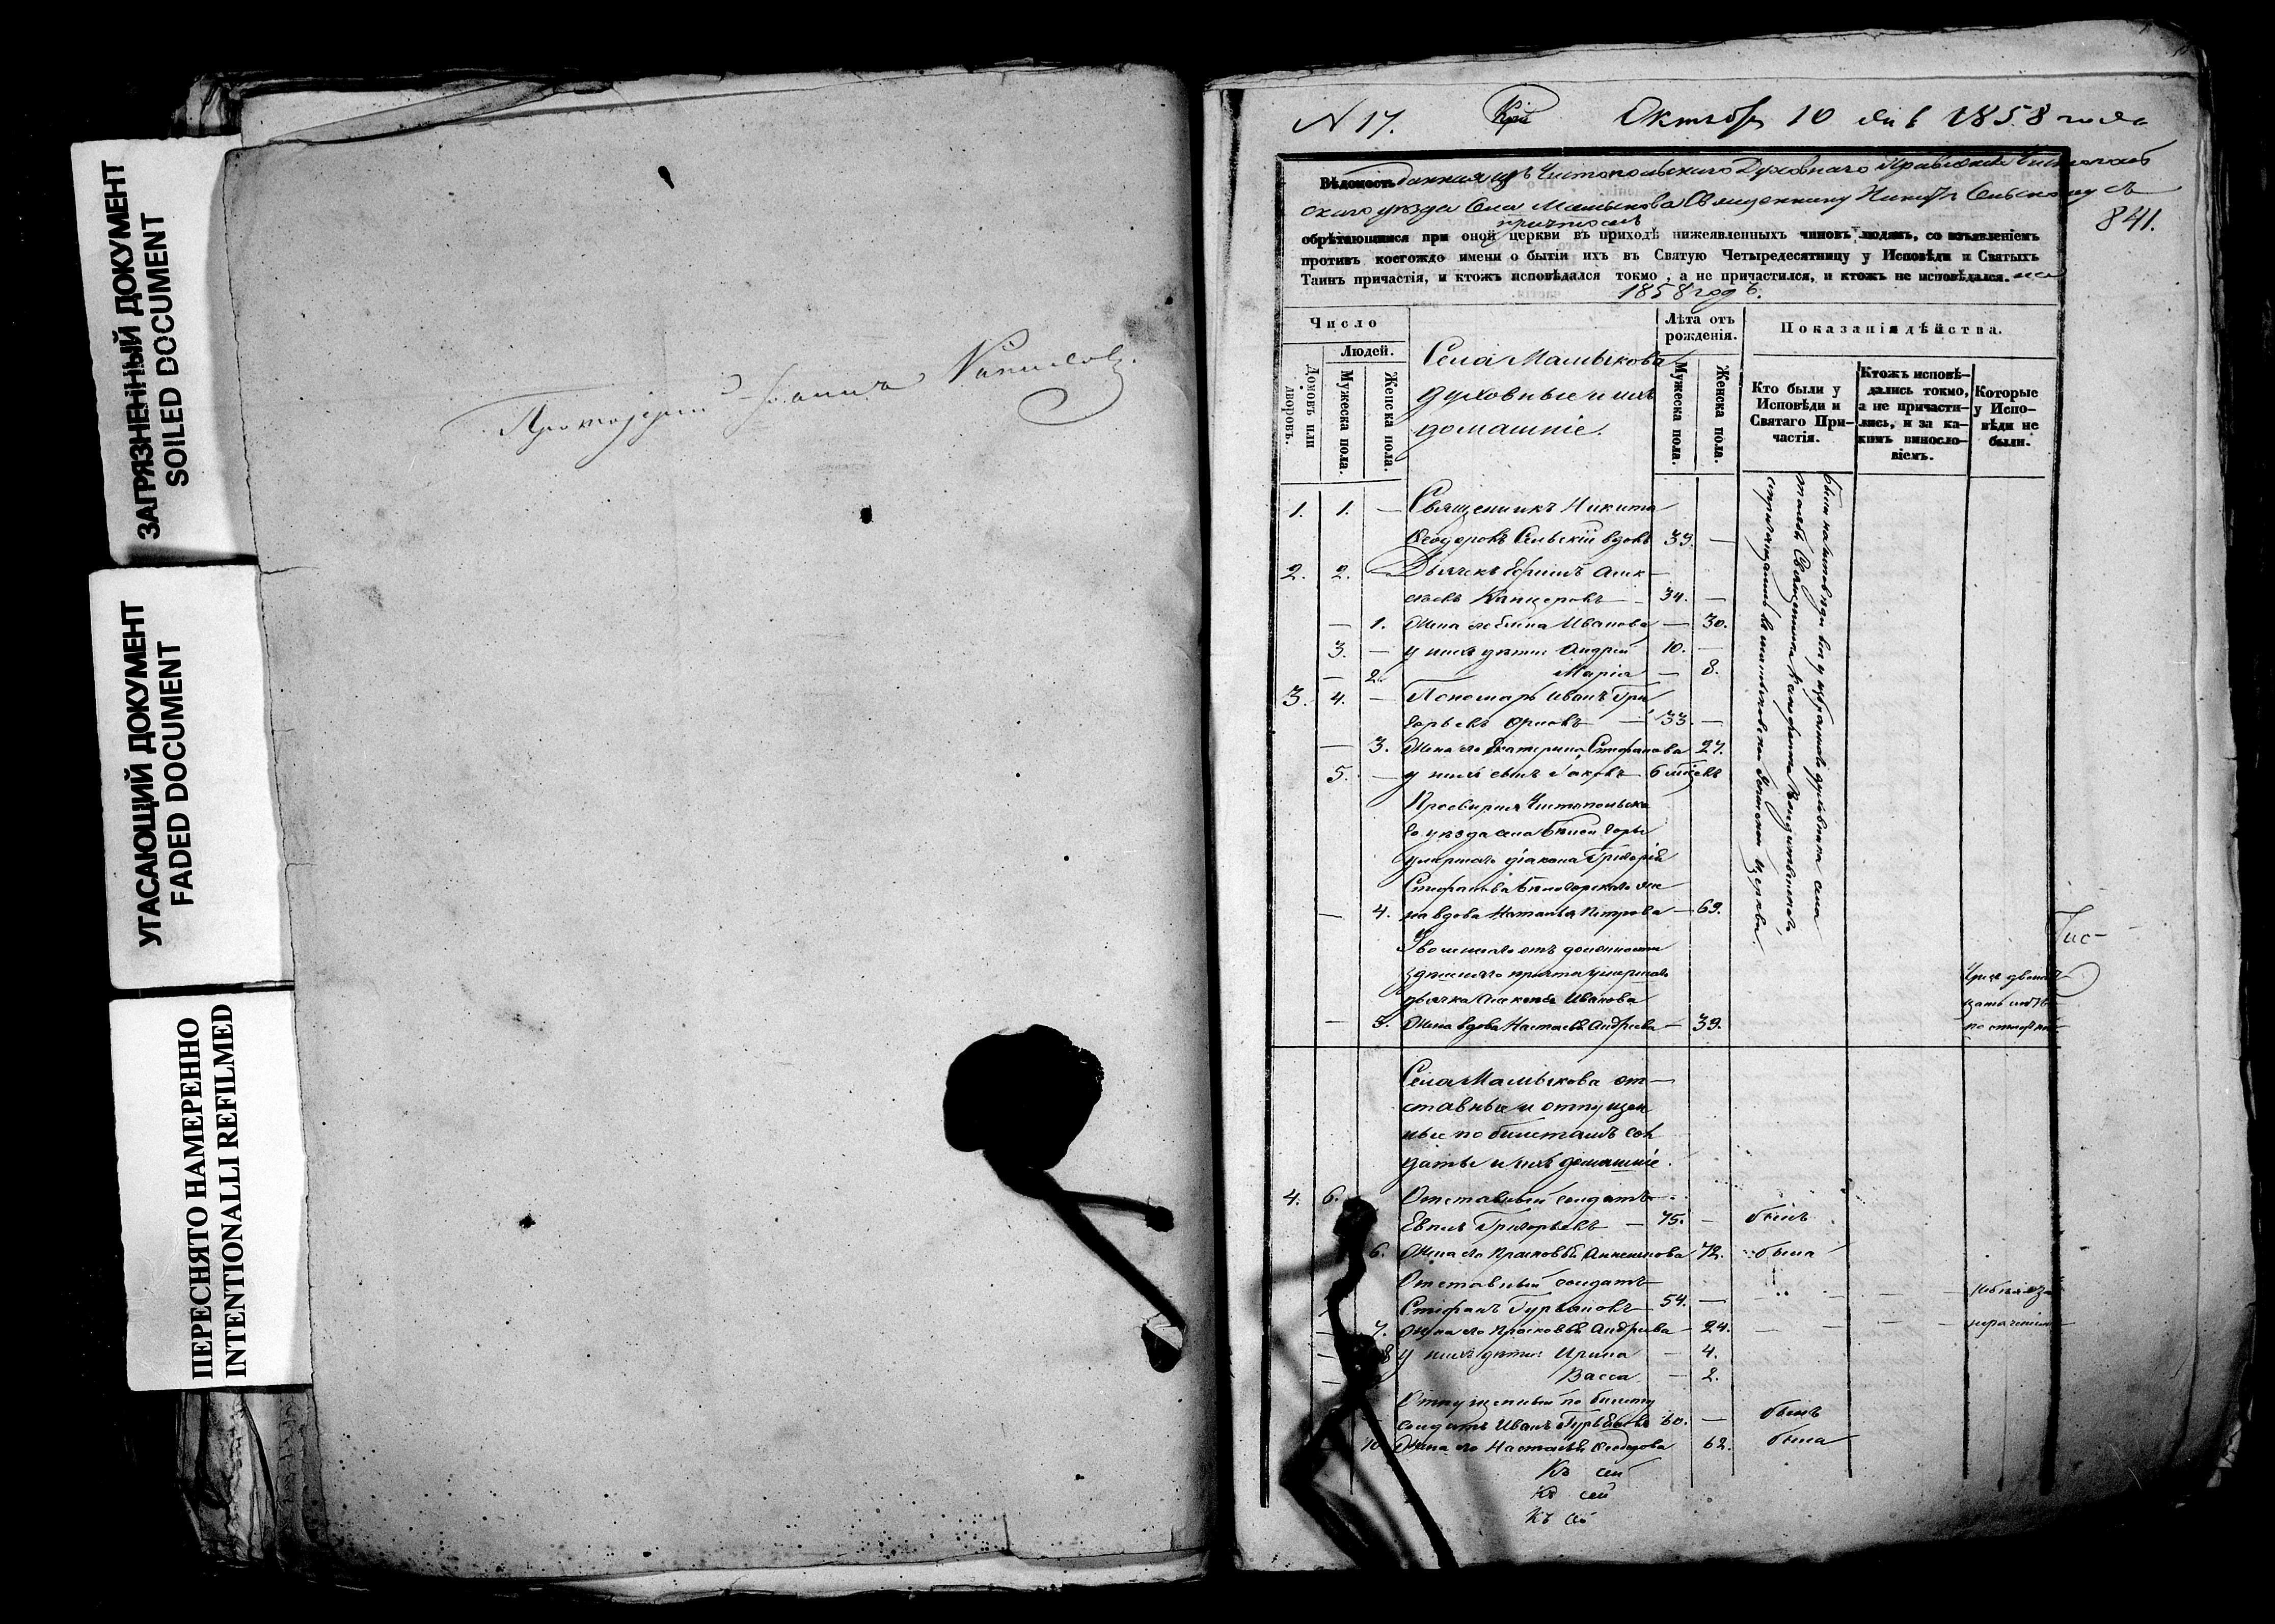 ЗАГРЯЗНЕННЫЙ ДОКУМЕНТ
SOILED DOCUMENT
УГАСАЮЩИЙ ДОКУМЕНТ
FADED DOCUMENT
ПЕРЕСНЯТО НАМЕРЕННО
INTENTIONALLI REFILMED
Протоіерей Іоаннъ
N 17.
Октября 10 дня 1858 года
841.
Вѣдомость данная изъ Чистопольскаго Духовнаго Правленія Чистополь
скаго уѣзда Села Мамыкова Священнику Никитѣ Сельскому съ
причтомъ
обрѣтающимся при оной церкви въ приходѣ нижеявленныхъ чиновъ людямъ, со изъявленіемъ
противъ коегождо имени о бытіи ихъ въ Святую Четыредесятницу у Исповѣди и Святыхъ
Таинъ причастія, и ктожъ исповѣдался токмо, а не причастился, и ктожъ не исповѣдался. на
1858 годъ.
Число
Людей.
Домовъ или дворовъ.
Мужеска пола.
Женска пола.
Села Мамыкова
духовные и ихъ
домашніе.
Лѣта отъ рожденія.
Мужеска пола.
Женска пола.
Показанія дѣйства.
Кто были у Исповѣди и Святаго При-частія.
Ктожъ исповѣ-дались токмо, а не причасти-лись, и за ка-кимъ виносло-віемъ.
Которые у Испо-вѣди не были.
1. 1. — Священникъ Никита
Ѳеодоровъ Сельскій вдовъ 39. —
2. 2. — Дьячекъ Ефимъ Алек
сѣевъ 34. —
— 1. Жена его Иванова — 30.
3. — у нихъ дѣти Андрей 10. —
— 2. Марія — 8.
3. 4. — Пономарь Иванъ Гри
горьевъ Орловъ — 33. —
— 3. Жена его Екатерина Стефанова 27.
5. — у нихъ сынъ Іаковъ 6 мѣсяцевъ
Просвирня Чистопольска
го уѣзда села Бѣлой Горы
умершаго діакона Григорія
Стефанова Бѣлогорскаго же
— 4. на вдова Наталья Петрова — 69.
Уволеннаго отъ должности
здѣшняго причта умершаго
дьячка Алексѣя Иванова
— 5. Жена вдова Настасья Андреева — 39.
Села Мамыкова от
ставные и отпущен
ные по билетамъ сол
даты и ихъ домашніе.
4. 6. Отставный солдатъ
Евплъ Григорьевъ — 75. — былъ
6. Жена его Прасковья 72. была
Отставный солдатъ
Стефанъ Гурьяновъ 54. —
7. Жена его Прасковья Андреева — 24.
8 у нихъ дѣти Ирина — 4.
Васса — 2.
Отпущенный по билету
солдатъ Иванъ 60. — былъ
10 Жена его Настасья Ѳеодорова 62. была
Къ сей
Къ сей
Къ се